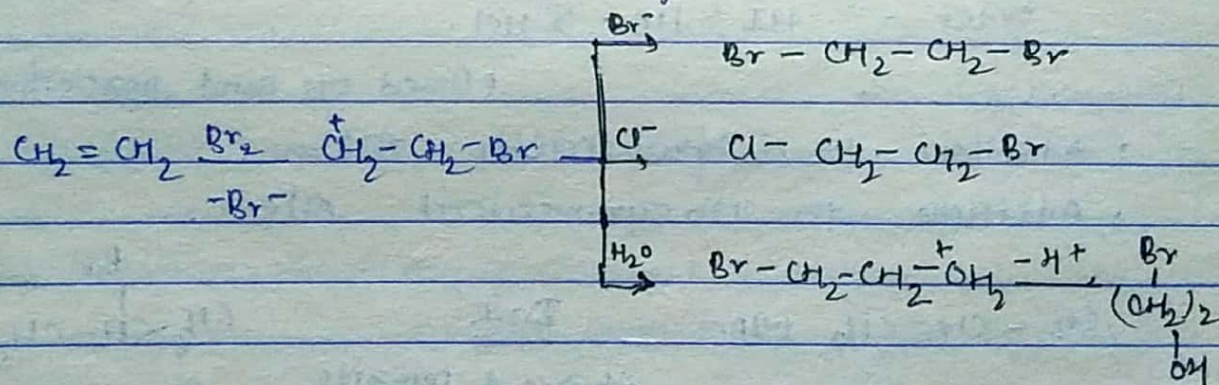 Br⁻ Br – CH₂ – CH₂ – Br
CH₂ = CH₂ Br₂ -Br⁻ C⁺H₂ – CH₂ – Br Cl⁻ Cl – CH₂ – CH₂ – Br
H₂O Br – CH₂ – CH₂ – O⁺H₂ -H⁺ Br
(CH₂)₂
OH